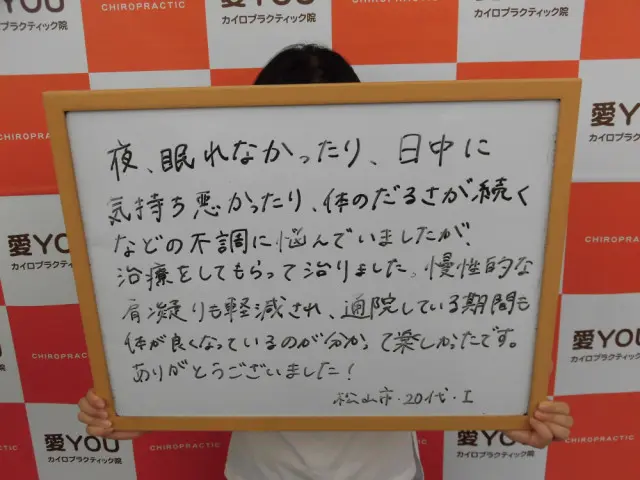 愛YOU
カイロプラクティック院
CHIROPRACTIC
愛YOU
カイロプラクティック院
CHIROPRACTIC
愛YOU
カイロプラクティック院
CHIROPRACTIC
愛YOU
カイロプラクティック院
CHIROPRACTIC
愛YOU
カイロプラクティック院
CHIROPRACTIC
愛YOU
カイロプラクティック院
CHIROPRACTIC
愛YOU
カイロプラクティック院
夜、眠れなかったり、日中に
気持ち悪かったり、体のだるさが続く
などの不調に悩んでいましたが、
治療をしてもらって治りました。慢性的な
肩凝りも軽減され、通院している期間も
体が良くなっているのが分かって楽しかったです。
ありがとうございました!
松山市・20代・I